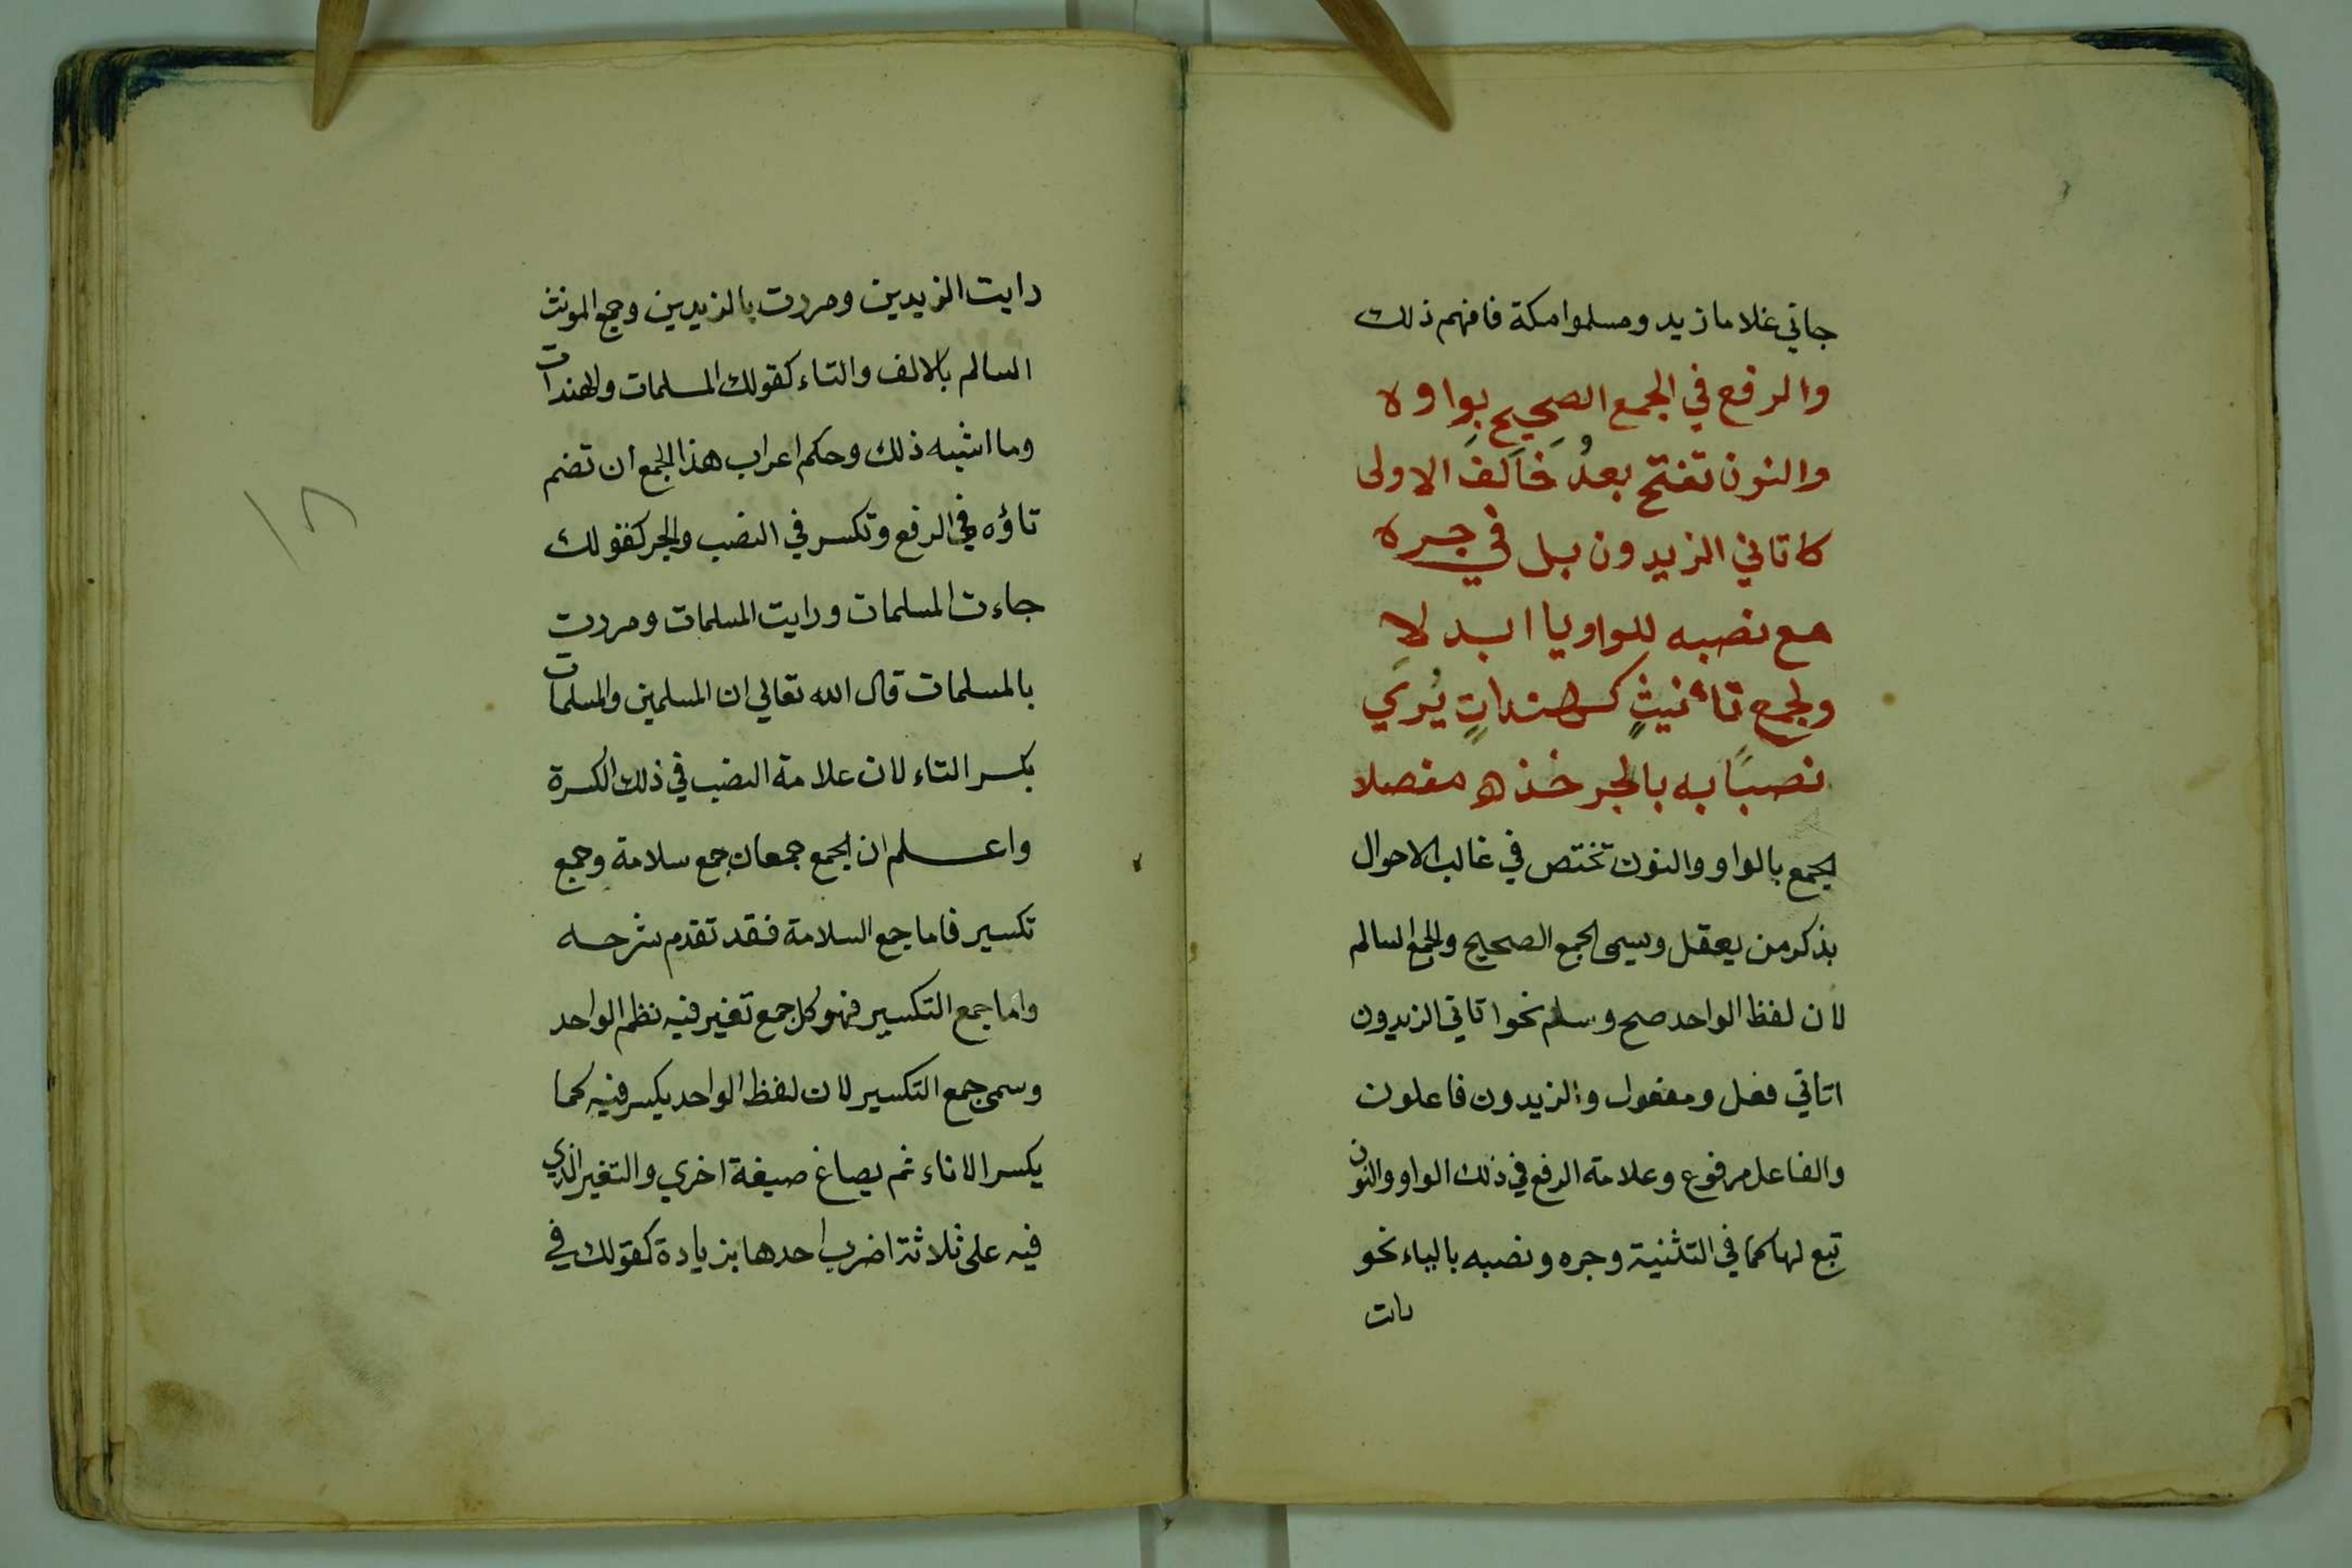 جاني غلاما زيد ومسلموا مكة فافهم ذلك
والرفع في الجمع الصحيح بواوه
والنون تفتح بعدُ خالف الاولى
كاتاني الزيدون بل في جره
مع نصبه للواو يا ابدلا
ولجمع تأنيثٍ كهنداتٍ يُرَي
نصبًا به بالجر خذه مفصلا
الجمع بالواو والنون تختص في غالب الاحوال
بذكر من يعقل وسمى الجمع الصحيح والجمع السالم
لان لفظ الواحد صح وسلم نحو اتاني الزيدون
اتاني فعل ومفعول والزيدون فاعلون
والفاعل مرفوع وعلامة الرفع في ذلك الواو والنون
تبع لها كما في التثنية وجره ونصبه بالياء نحو
رات
رايت الزيدين ومررت بالزيدين وجمع المونث
السالم بالالف والتاء كقولك المسلمات والهندات
وما اشبه ذلك وحكم اعراب هذا الجمع ان تضم
تاؤه في الرفع وتكسر في النصب والجر كقولك
جاءت المسلمات ورايت المسلمات ومررت
بالمسلمات قال الله تعالي ان المسلمين والمسلمات
بكسر التاء لان علامة النصب في ذلك الكسرة
واعلم ان الجمع جمعان جمع سلامة وجمع
تكسير فاما جمع السلامة فقد تقدم شرحه
واما جمع التكسير فهو كل جمع تغير فيه نظم الواحد
وسمى جمع التكسير لان لفظ الواحد يكسر فيه كما
يكسر الاناء ثم يصاغ صيغة اخري والتغير الذي
فيه على ثلاثة اضرب احدها بزيادة كقولك في
١٨